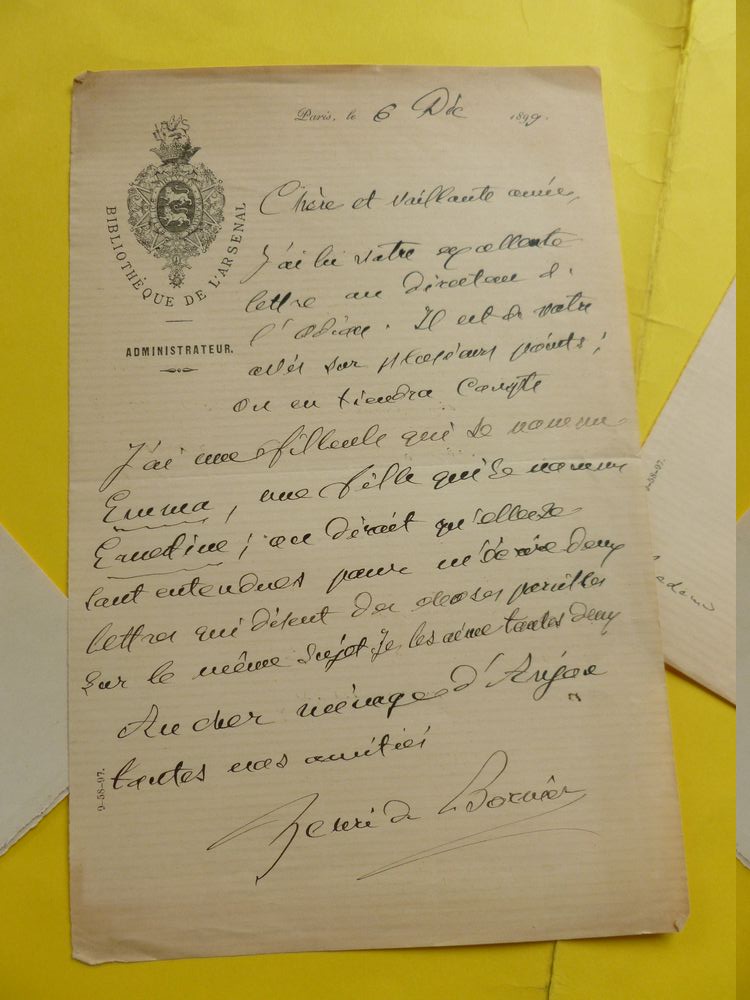 Paris, le 6 Déc 1899.
BIBLIOTHÈQUE DE L'ARSENAL
ADMINISTRATEUR.
Chère et vaillante amie,
J'ai lu votre excellente
lettre au directeur de
l'Odéon. Il est de votre
avis sur plusieurs points;
on en tiendra compte
J'ai une filleule qui se nomme
Emma, une fille qui se nomme
Ernestine; on dirait qu'elles se
sont entendues pour m'écrire deux
lettres qui disent des choses pareilles
sur le même sujet. Je les aime toutes deux
Au cher ménage d'Anjou
toutes nos amitiés
Henri de Bornier
9-58-97.